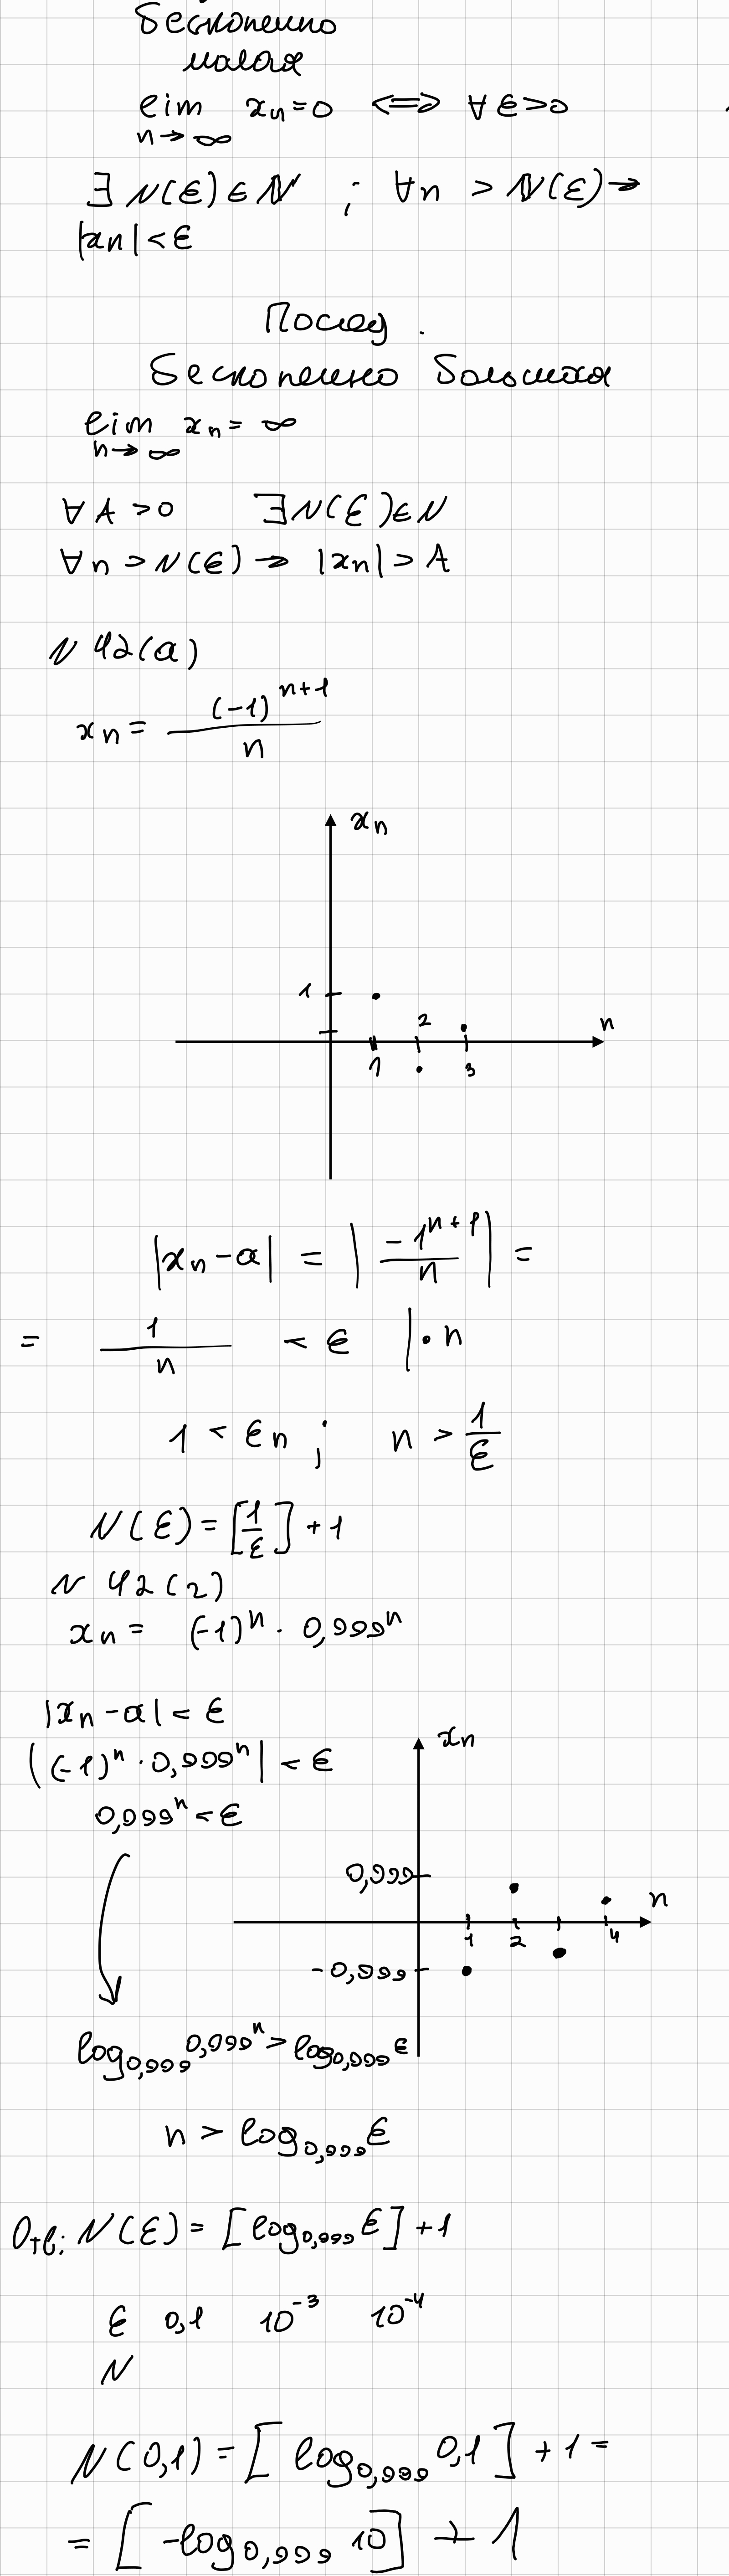 бесконечно
малая
lim xₙ = 0 ⟺ ∀ ε > 0
n → ∞
∃ N(ε) ∈ N ; ∀n > N(ε) →
|xₙ| < ε
Послед.
бесконечно большая
lim xₙ = ∞
n → ∞
∀ A > 0 ∃ N(ε) ∈ N
∀ n > N(ε) → |xₙ| > A
N 42(а)
xₙ = (-1)ⁿ⁺¹ / n
xₙ
1
2
n
1
3
|xₙ - a| = | -1ⁿ⁺¹ / n | =
= 1 / n < ε | · n
1 < εn ; n > 1/ε
N(ε) = [1/ε] + 1
N 42(2)
xₙ = (-1)ⁿ · 0,999ⁿ
|xₙ - a| < ε
xₙ
|(-1)ⁿ · 0,999ⁿ| < ε
0,999ⁿ < ε
0,999
n
1 2 4
-0,999
log₀,₉₉₉ 0,999ⁿ > log₀,₉₉₉ ε
n > log₀,₉₉₉ ε
Отв: N(ε) = [log₀,₉₉₉ ε] + 1
ε 0,1 10⁻³ 10⁻⁴
N
N(0,1) = [log₀,₉₉₉ 0,1] + 1 =
= [-log₀,₉₉₉ 10] + 1